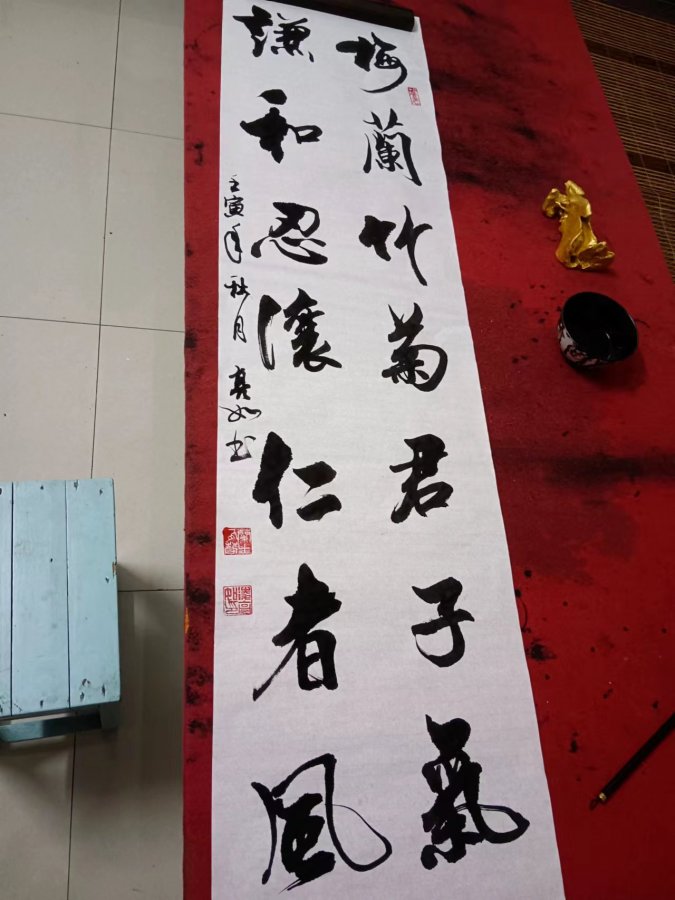 梅蘭竹菊君子氣
謙和忍讓仁者風
壬寅年秋月亮如书